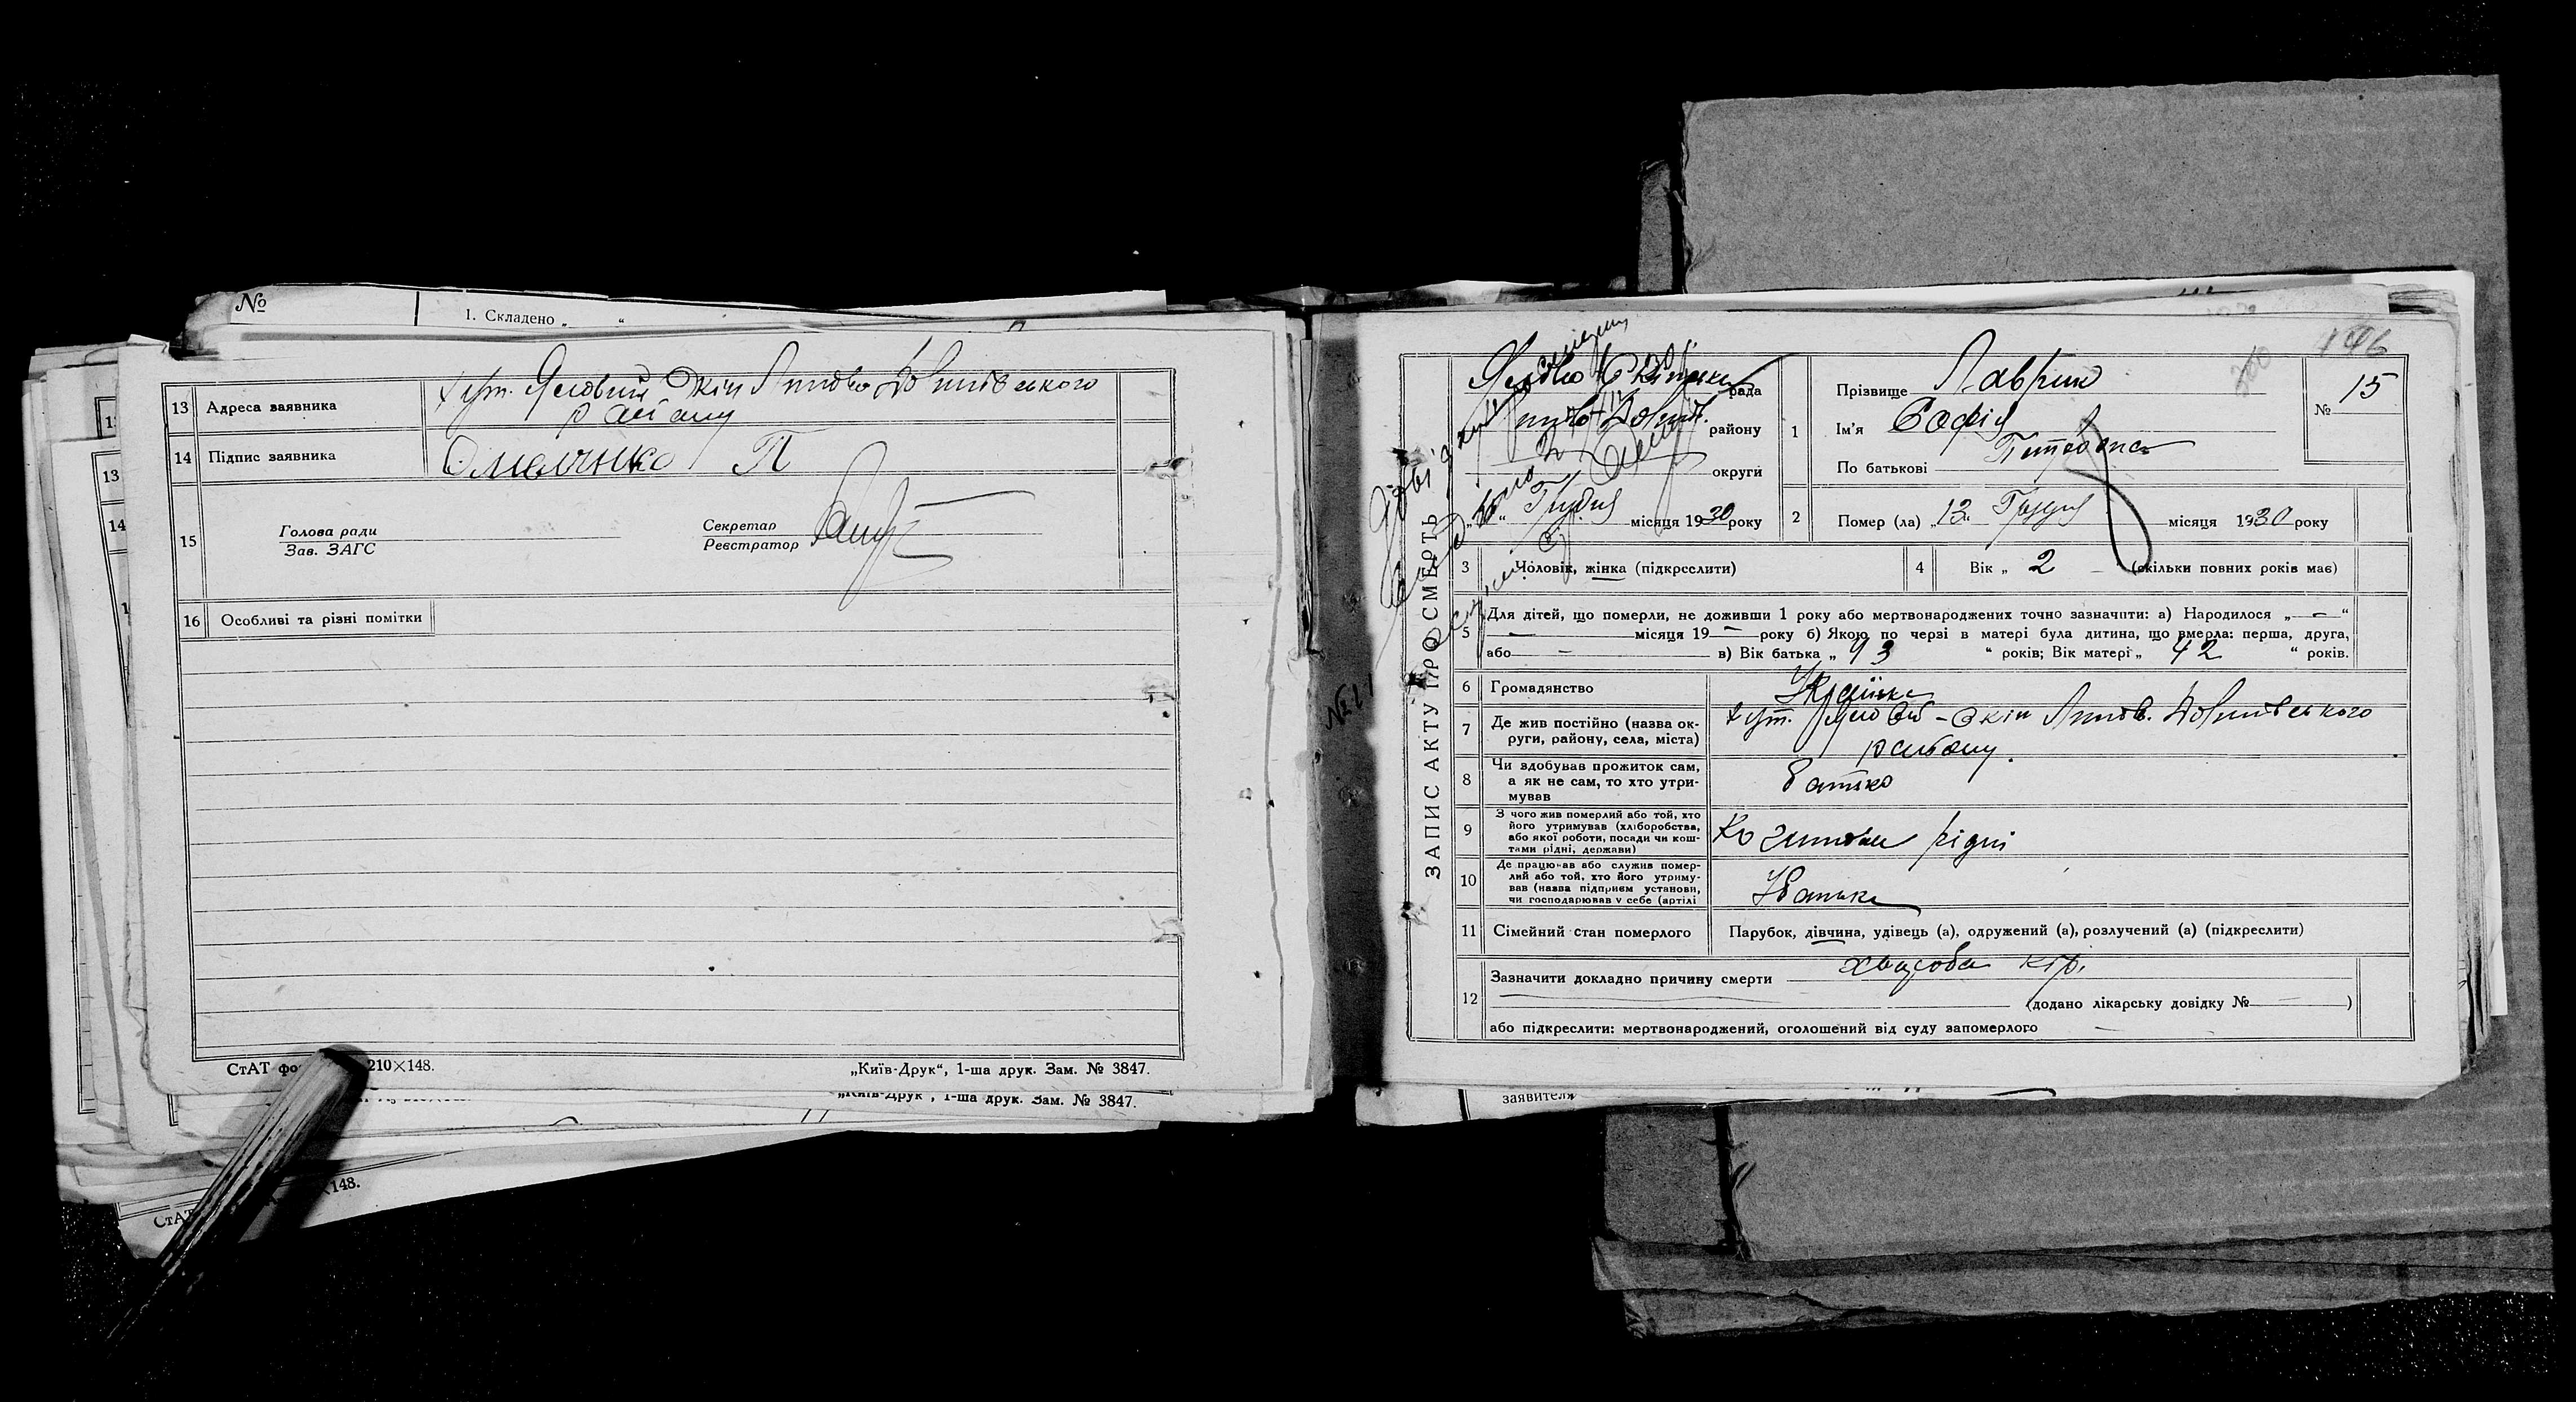 №
1. Складено „ “
13 Адреса заявника
хут. Яловий Окіп Липово Долинського
району
14 Підпис заявника Омелянко П
15 Голова ради
Зав. ЗАГС
Секретар
Реєстратор
16 Особливі та різні помітки
СтАТ 210×148.
„Київ-Друк“, 1-ша друк. Зам. № 3847.
„Київ-Друк“, 1-ша друк. Зам. № 3847.
×148.
СтАТ
146
ЗАПИС АКТУ ПРО СМЕРТЬ
рада
району
округи
Грудня місяця 1930 року
1 Прізвище Лаврик
Ім'я Софія
По батькові Петровна
№ 15
2 Помер (ла) „13“ Грудня місяця 1930 року
3 Чоловік, жінка (підкреслити)
4 Вік „ 2 “ (скільки повних років має)
5 Для дітей, що померли, не доживши 1 року або мертвонароджених точно зазначити: а) Народилося „ — “
— місяця 19 — року б) Якою по черзі в матері була дитина, що вмерла: перша, друга,
або — в) Вік батька „ 43 “ років; Вік матері „ 42 “ років.
6 Громадянство Українка
7 Де жив постійно (назва округи, району, села, міста)
хут. Яловий-Окіп Липов. Долинського
району.
8 Чи здобував прожиток сам,
а як не сам, то хто утримував
батько
9 З чого жив померлий або той, хто
його утримував (хліборобства,
або якої роботи, посади чи коштами рідні, держави)
Коштами рідні
10 Де працював або служив померлий або той, хто його утримував (назва підприєм установи,
чи господарював у себе (артілі
У батька
11 Сімейний стан померлого Парубок, дівчина, удівець (а), одружений (а), розлучений (а) (підкреслити)
12 Зазначити докладно причину смерти хвороба кір.
(додано лікарську довідку № — )
або підкреслити: мертвонароджений, оголошений від суду запомерлого —
заявителя